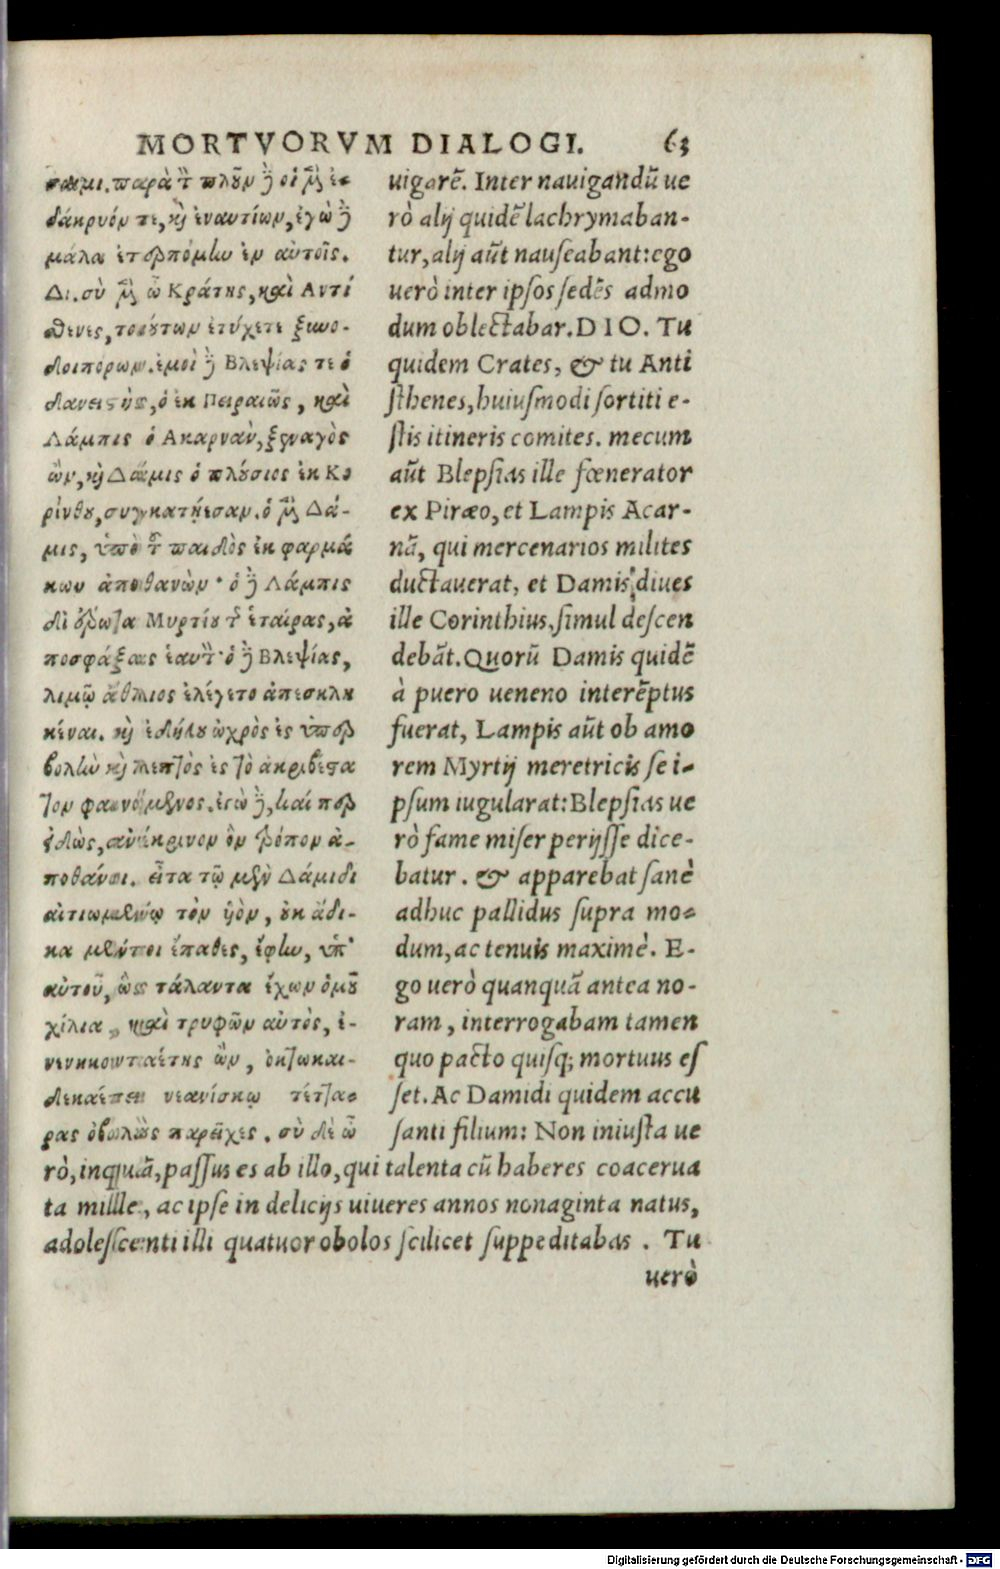 MORTVORVM DIALOGI. 63
σαιμι. παρὰ τ̀ πλοῦν δὲ οἱ μὲν ἐ-
δάκρυόν τε, καὶ ἐναυτίων, ἐγὼ δὲ
μάλα ἐτερπόμην ἐν αὐτοῖς.
Δι. σὺ μὲν ὦ Κράτης, καὶ Αντί
θενες, τοιούτων ἐτύχετε ξυνο-
δοιπόρων. ἐμοὶ δὲ Βλεψίας τε ὁ
δανειστὴς, ὁ ἐκ Πειραιῶς, καὶ
Λάμπις ὁ Ακαρνὰν, ξεναγὸς
ὢν, καὶ Δάμις ὁ πλούσιος ἐκ Κο
ρίνθου, συγκατῄεσαν. ὁ μὲν Δά-
μις, ὑπὸ τοῦ παιδὸς ἐκ φαρμά
κων ἀποθανὼν· ὁ δὲ Λάμπις
δι' ἔρωτα Μυρτίου τῆς ἑταίρας, ἀ
ποσφάξας ἑαυτόν· ὁ δὲ Βλεψίας,
λιμῷ ἄθλιος ἐλέγετο ἀπεσκλη
κέναι. καὶ ἐδήλου ὠχρὸς ἐς ὑπερ
βολὴν καὶ λεπτὸς ἐς τὸ ἀκριβέστα
τον φαινόμενος. ἐγὼ δὲ, καί περ
εἰδὼς, ἀνέκρινον ὃν τρόπον ἀ-
ποθάνοι. εἶτα τῷ μὲν Δάμιδι
αἰτιωμένῳ τὸν υἱὸν, οὐκ ἄδι-
κα μέντοι ἔπαθες, ἔφην, ὑπ'
αὐτοῦ, ὃς τάλαντα ἔχων ὁμοῦ
χίλια, καὶ τρυφῶν αὐτὸς, ἐ-
νενηκονταέτης ὢν, ὀκτωκαι-
δεκαέτει νεανίσκῳ τέττα-
ρας ὀβολοὺς παρεῖχες. σὺ δὲ ὦ
uigarē. Inter nauigandū ue
rò alij quidē lachrymaban-
tur, alij aūt nauseabant: ego
uerò inter ipsos sedēs admo
dum oblectabar. DIO. Tu
quidem Crates, & tu Anti
sthenes, huiusmodi sortiti e-
stis itineris comites. mecum
aūt Blepsias ille fœnerator
ex Piræo, et Lampis Acar-
nā, qui mercenarios milites
ductauerat, et Damis diues
ille Corinthius, simul descen
debāt. Quorū Damis quidē
à puero ueneno interēptus
fuerat, Lampis aūt ob amo
rem Myrtij meretricis sei-
psum iugularat: Blepsias ue
rò fame miser perijsse dice-
batur. & apparebat sanè
adhuc pallidus supra mo-
dum, ac tenuis maximè. E-
go uerò quanquā antea no-
ram, interrogabam tamen
quo pacto quisq; mortuus es
set. Ac Damidi quidem accu
santi filium: Non iniusta ue
rò, inquā, passus es ab illo, qui talenta cū haberes coacerua
ta mille, ac ipse in delicijs uiueres annos nonaginta natus,
adolescenti illi quatuor obolos scilicet suppeditabas. Tu
uerò
Digitalisierung gefördert durch die Deutsche Forschungsgemeinschaft - DFG